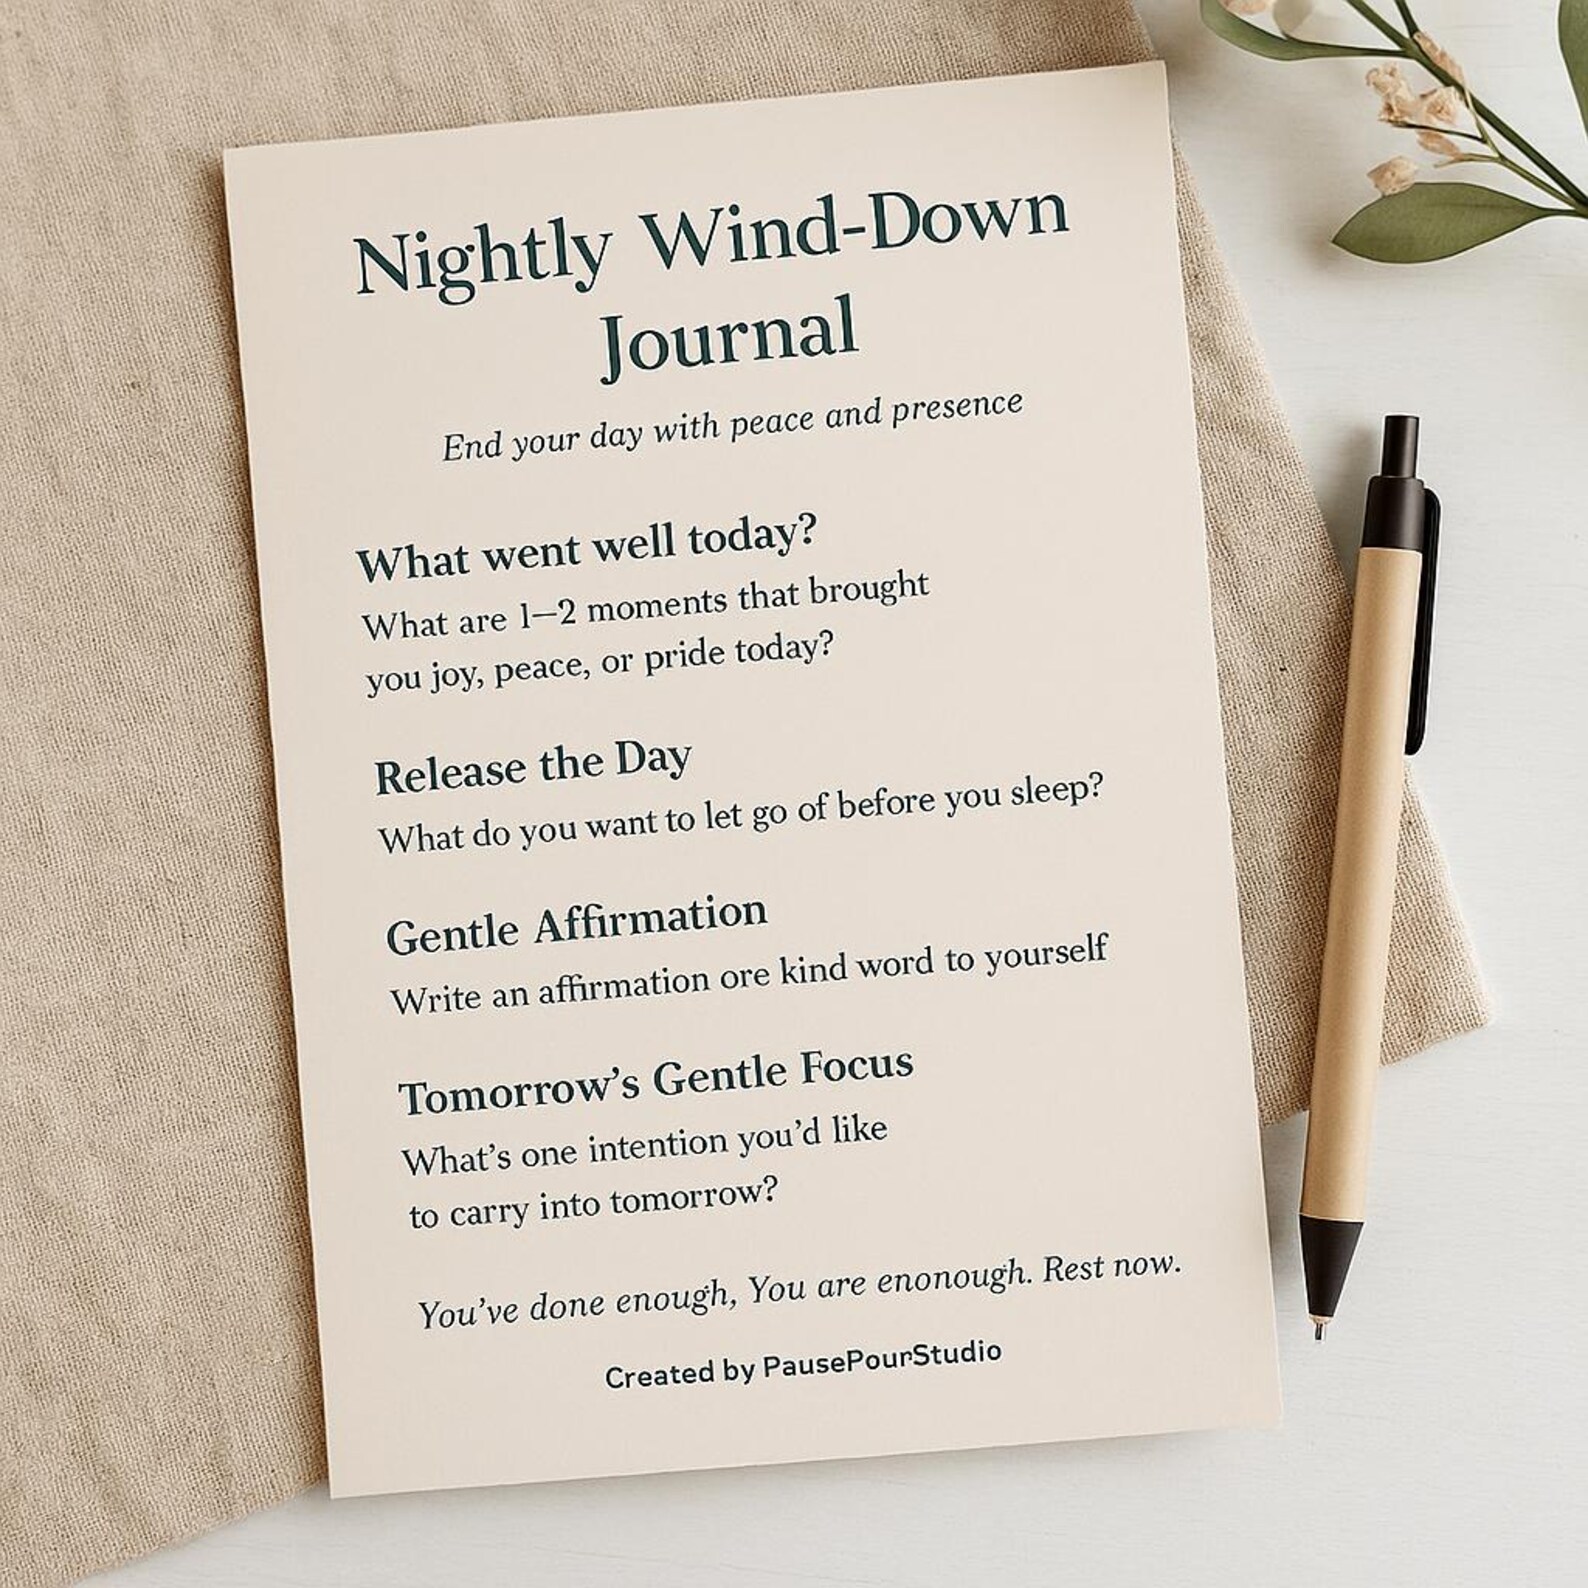 Nightly Wind-Down
Journal
End your day with peace and presence
What went well today?
What are 1–2 moments that brought
you joy, peace, or pride today?
Release the Day
What do you want to let go of before you sleep?
Gentle Affirmation
Write an affirmation ore kind word to yourself
Tomorrow’s Gentle Focus
What’s one intention you’d like
to carry into tomorrow?
You’ve done enough, You are enonough. Rest now.
Created by PausePourStudio